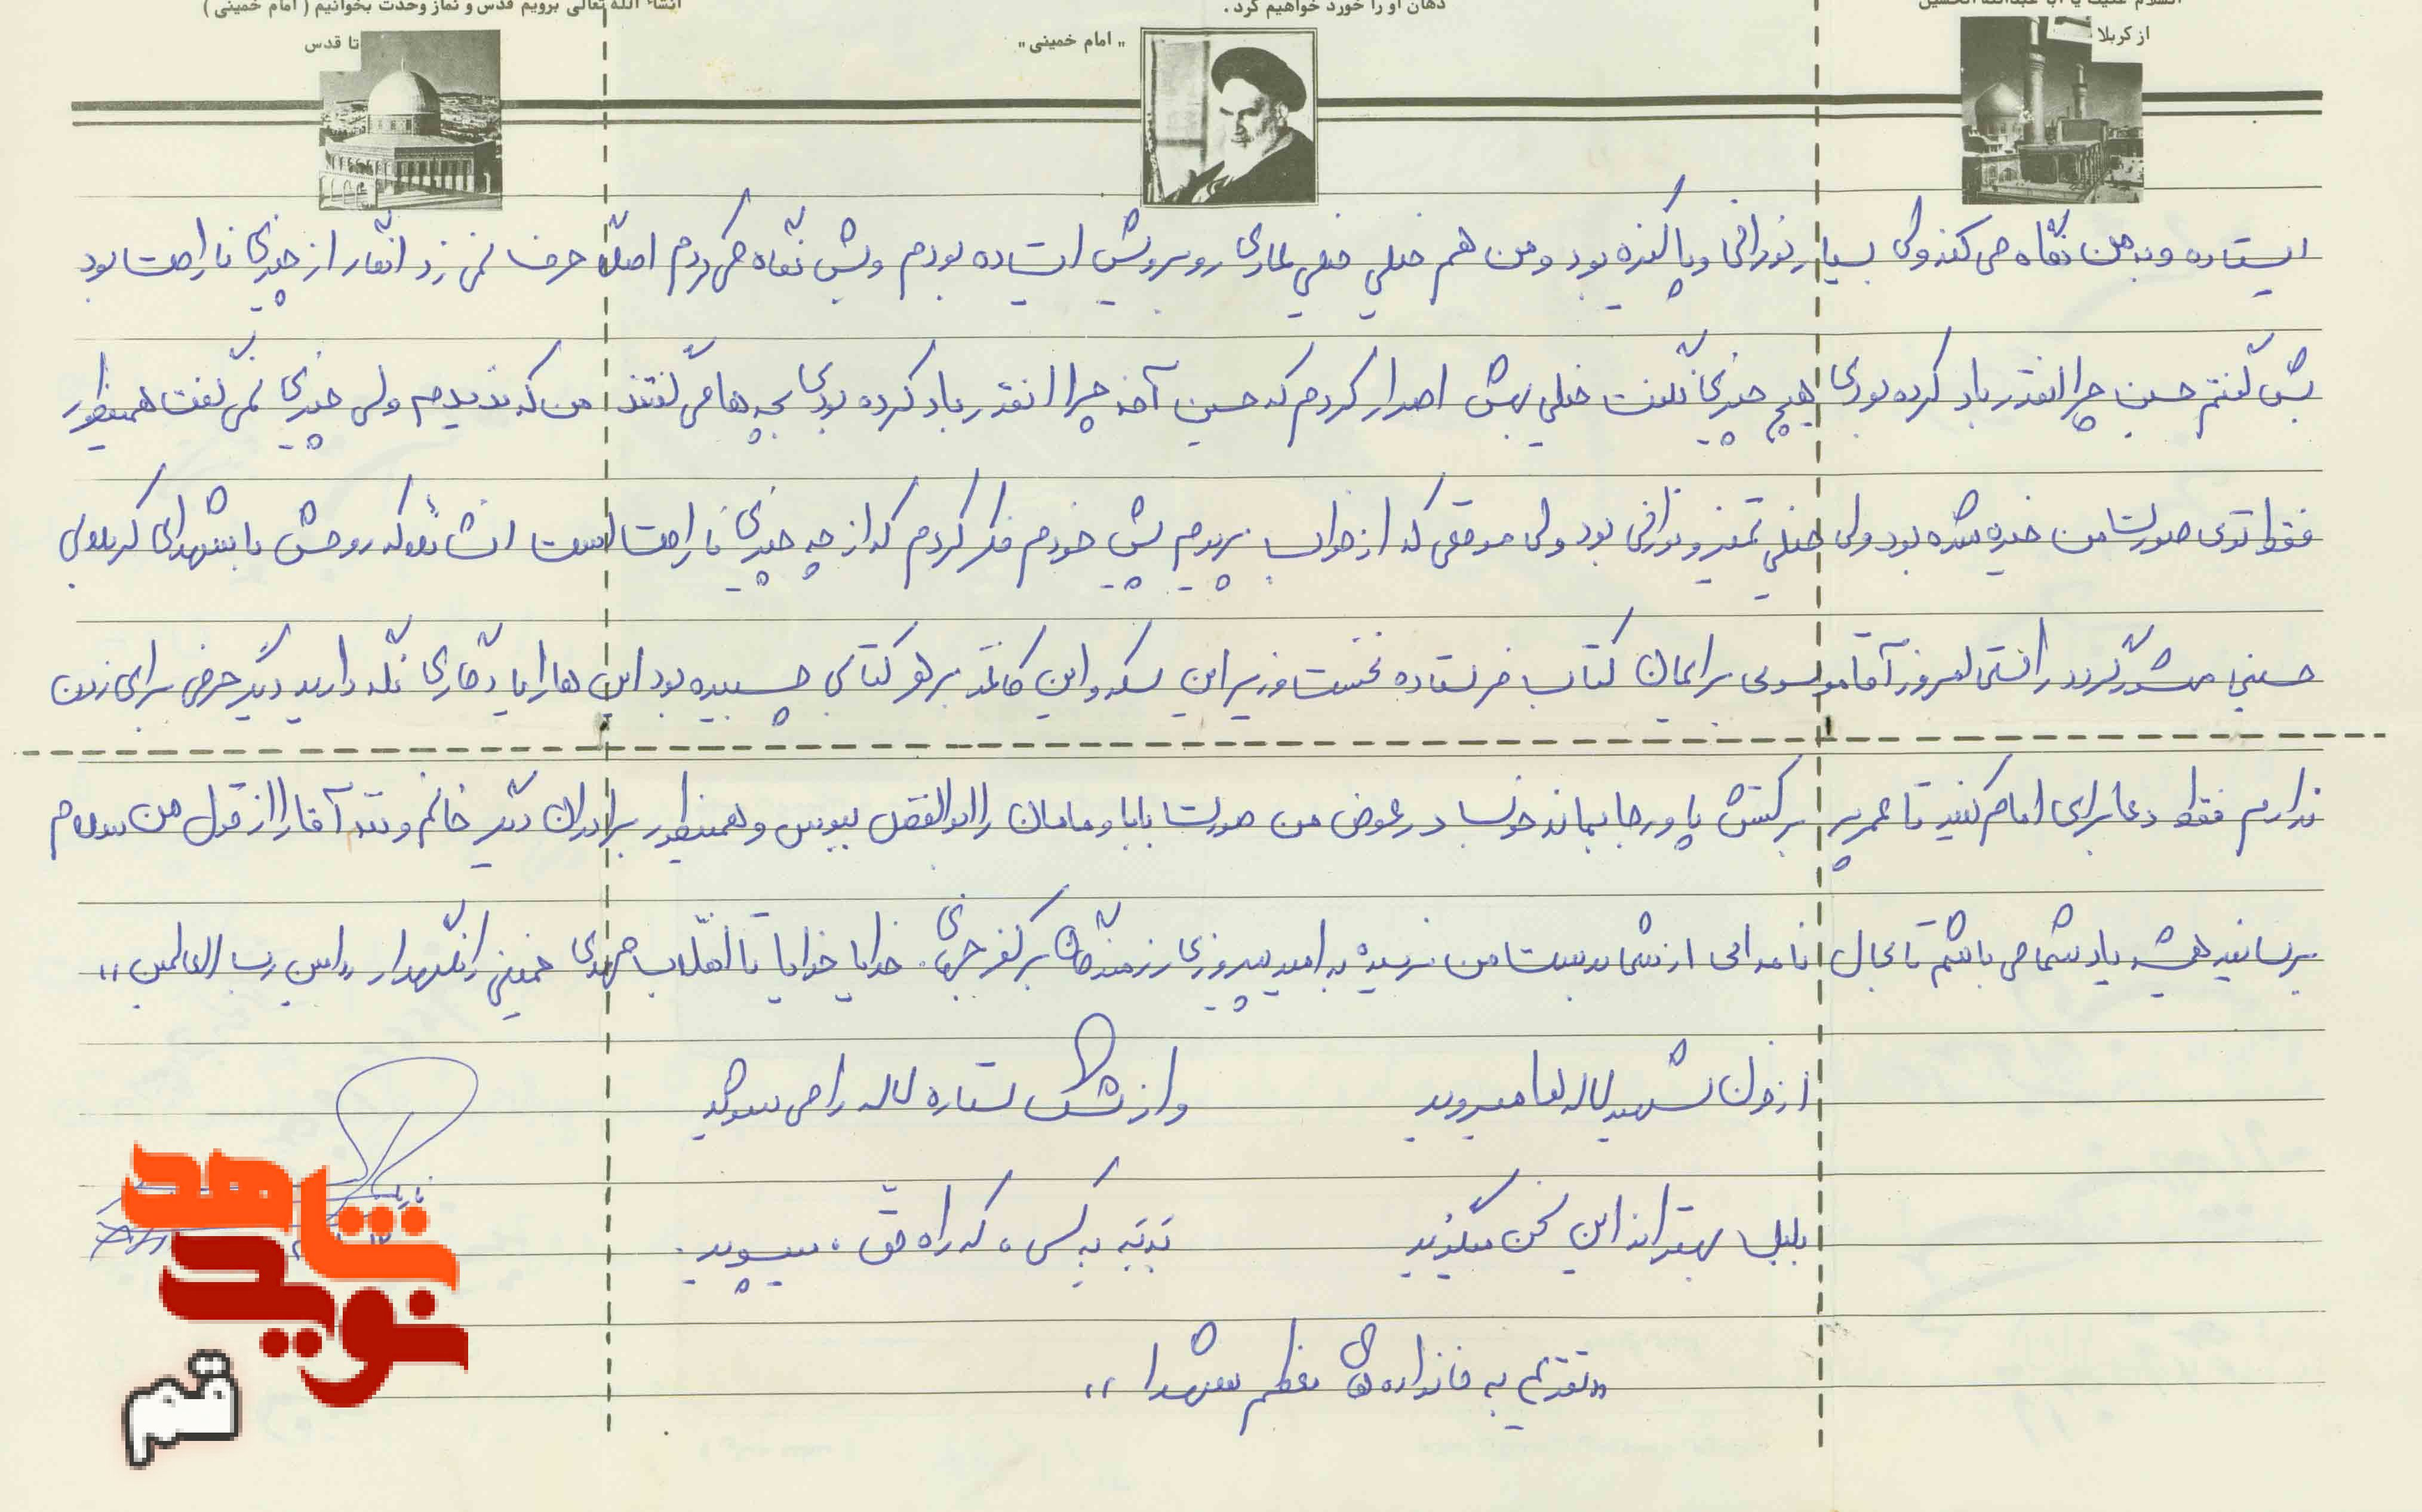 السلام علیک یا ابا عبدالله الحسین
دهان او را خورد خواهیم کرد .
انشاء الله تعالی برویم قدس و نماز وحدت بخوانیم ( امام خمینی )
از کربلا
" امام خمینی "
تا قدس
ایستاده و به من نگاه می کند ولی بسیار نورانی و پاکیزه بود و من هم خیلی خیلی عادی روبرویش ایستاده بودم و بش نگاه می کردم اصلاً حرف نمی زد انگار از چیزی ناراحت بود
بش گفتم حسین چرا انقدر باد کرده بودی هیچ چیزی نگفت خیلی بهش اصرار کردم که حسین آخه چرا انقدر باد کرده بودی بچه ها می گفتند من که ندیدم ولی چیزی نمی گفت همینطور
فقط توی صورت من خیره شده بود ولی خیلی تمیز و نورانی بود ولی موقعی که از خواب پریدم پیش خودم فکر کردم که از چه چیزی ناراحت است انشاءالله که روحش با شهدای کربلای
حسینی محشور گردد راستی امروز آقا موسوی برایمان کتاب فرستاده نخست وزیر این سکه و این کاغذ بر هر کتابی چسبیده بود این ها را یادگاری نگه دارید دیگر حرفی برای زدن
ندارم فقط دعا برای امام کنید تا عمر پر برکتش پا ورجا بماند خوب در عوض من صورت بابا و مامان را ابوالفضل ببوس و همینطور برادران دیگر خانم و آقا را از قول من سلام
برسانید همیشه یاد شما می باشم تا بحال نامه ای از شما بدست من نرسیده به امید پیروزی رزمندگان بر کفر جهانی . خدایا خدایا تا انقلاب مهدی خمینی را نگهدار رب العالمین ،،
از خون شهید لاله ها میروید
و از اشک ستاره لاله را می شوید
بلبل بهتر از این سخن میگوید
به کسی ، که راه حق ، میپوید .
« تقدیم به خانواده های معظم شهدا ،،
شاهد
نوید
قم